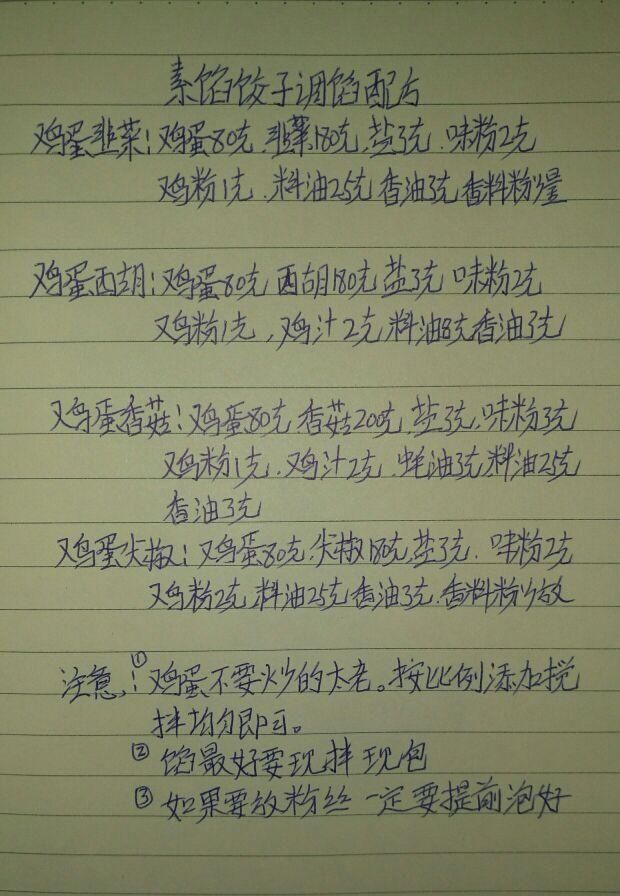 素馅饺子调馅配方
鸡蛋韭菜:鸡蛋80克.韭菜180克,盐3克.味粉2克
鸡粉1克.料油25克香油3克香料粉少量
鸡蛋西胡:鸡蛋80克 西胡180克盐3克 味粉2克
鸡粉1克,鸡汁2克料油8克香油3克
鸡蛋香菇:鸡蛋80克.香菇200克,盐3克.味粉3克
鸡粉1克.鸡汁2克.蚝油3克,料油25克
香油3克
鸡蛋尖椒:鸡蛋80克.尖椒180克盐3克.味粉2克
鸡粉2克料油25克香油3克.香料粉少放
注意:①鸡蛋不要炒的太老。按比例添加搅
拌均匀即可。
②馅最好要现拌现包
③如果要放粉丝一定要提前泡好